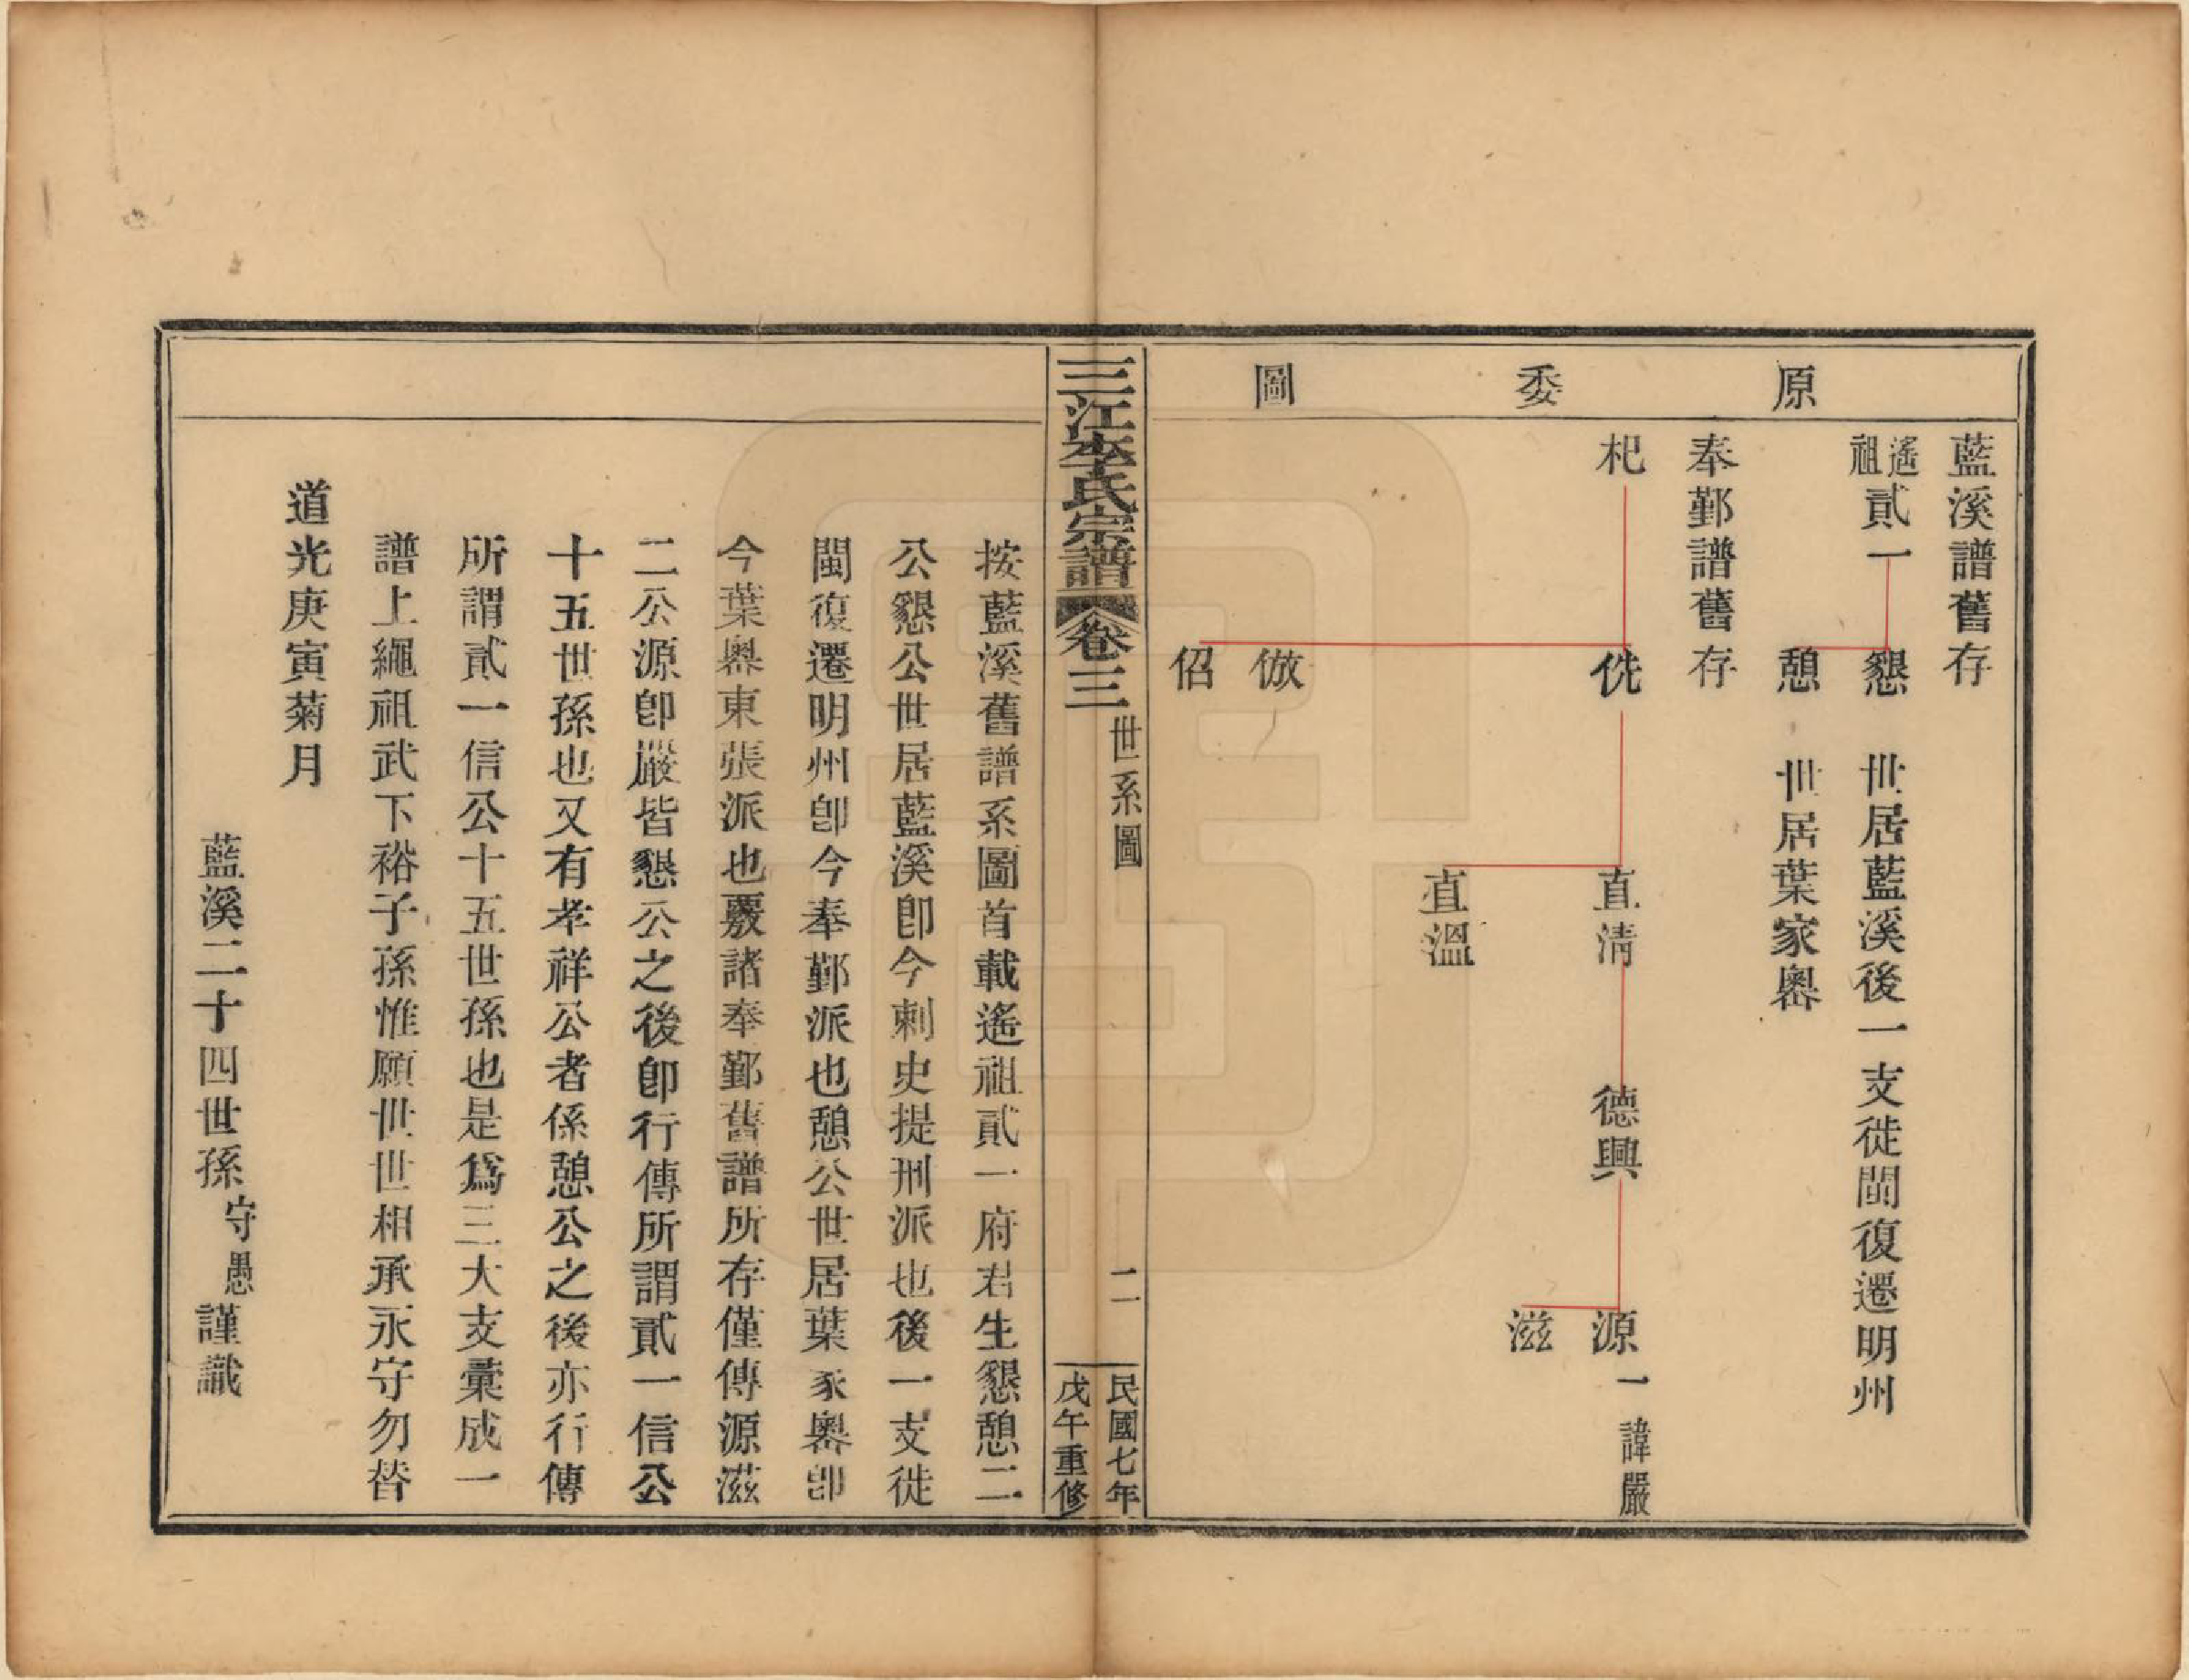 原委圖
藍溪譜舊存
遙祖貳一 懇 世居藍溪後一支徙閩復遷明州
憩 世居葉家嶴
奉鄞譜舊存
杞 侁 直清 德興 源一諱嚴
滋
直溫
倣
佋
三江李氏宗譜 卷三 世系圖 二 民國七年戊午重修
按藍溪舊譜系圖首載遙祖貳一府君生懇憩二
公懇公世居藍溪卽今刺史提刑派也後一支徙
閩復遷明州卽今奉鄞派也憩公世居葉家嶴卽
今葉嶴東張派也覈諸奉鄞舊譜所存僅傳源滋
二公源卽嚴皆懇公之後卽行傳所謂貳一信公
十五世孫也又有孝祥公者係憩公之後亦行傳
所謂貳一信公十五世孫也是爲三大支彙成一
譜上繩祖武下裕子孫惟願世世相承永守勿替
道光庚寅菊月
藍溪二十四世孫守愚謹識